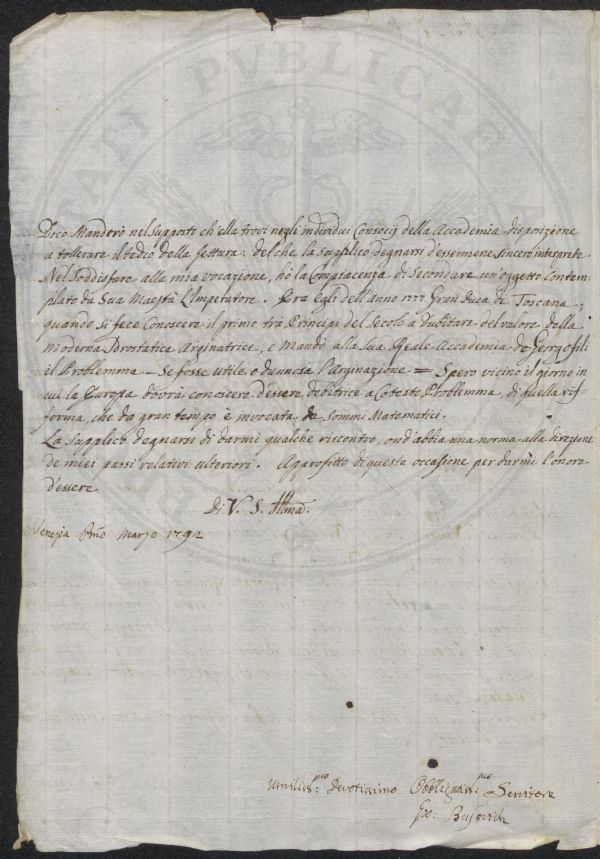 Dico Manderò nel supposto ch'ella trovi negli individui Consocj della Accademia disposizione
a tollerare il tedio della lettura: del che la supplico degnarsi d'essermene sincero interprete.
Nel soddisfare alla mia vocazione, hò la Compiacenza di Secondare un'oggetto Contem-
plato da Sua Maestà L'Imperatore. Era Egli dell'anno Gran Duca di Toscana,
quando si fece Conoscere il primo trà Principi del Secolo a Dubitare del valore della
moderna Arginatrice, e mandò alla Sua Reale Accademia de Georgofili
il Problemma = Se fosse utile o dannosa l'Arginazione = Spero vicino il giorno in
cui la Europa dovrà conoscere d'essere debitrice a Cotesto Problemma, di quella rif-
forma, che da gran tempo è invocata da Sommi Matematici.
La Supplico degnarsi di darmi qualche riscontro, ond'abbia una norma alla direzione
de miei passi relativi ulteriori. Approfitto di questa occasione per darmi l'onore
d'essere
Di V. S. Illma.
Venezia Pmo Marzo 1792
Umiliss:mo Devotissimo Obbligatiss:mo Servitore